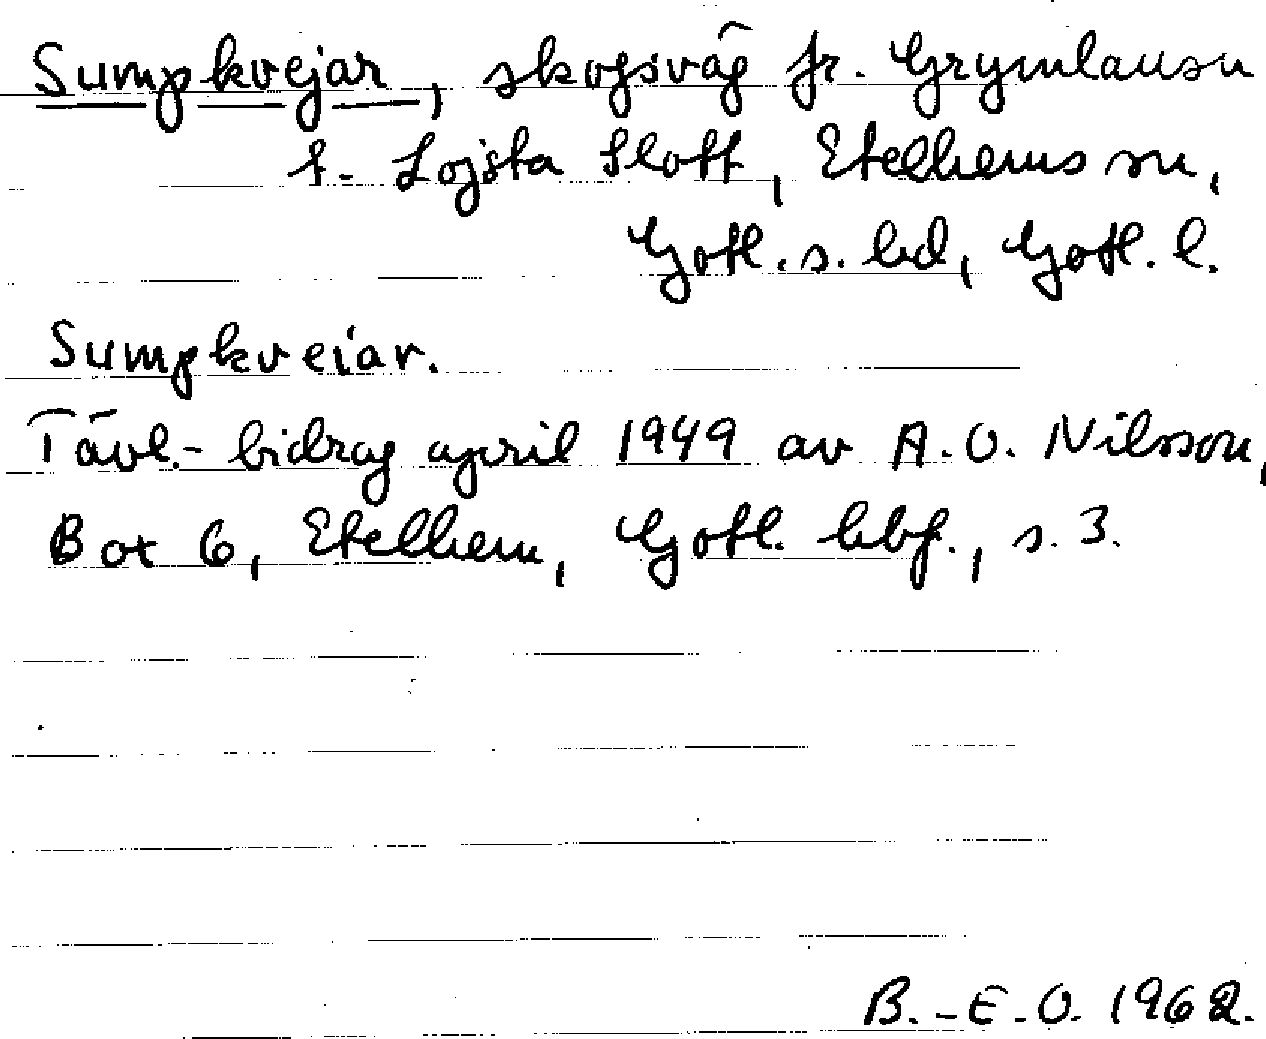 Sumpkvejar, skogsväg fr. Grymlausu
t. Lojsta Slott, Etelhems sn,
Gotl. s. hd, Gotl. l.
Sumpkveiar.
Tävl.- bidrag april 1949 av A. O. Nilsson,
Box 6, Etelhem, Gotl. hbf., s. 3.
B.-E. O. 1962.